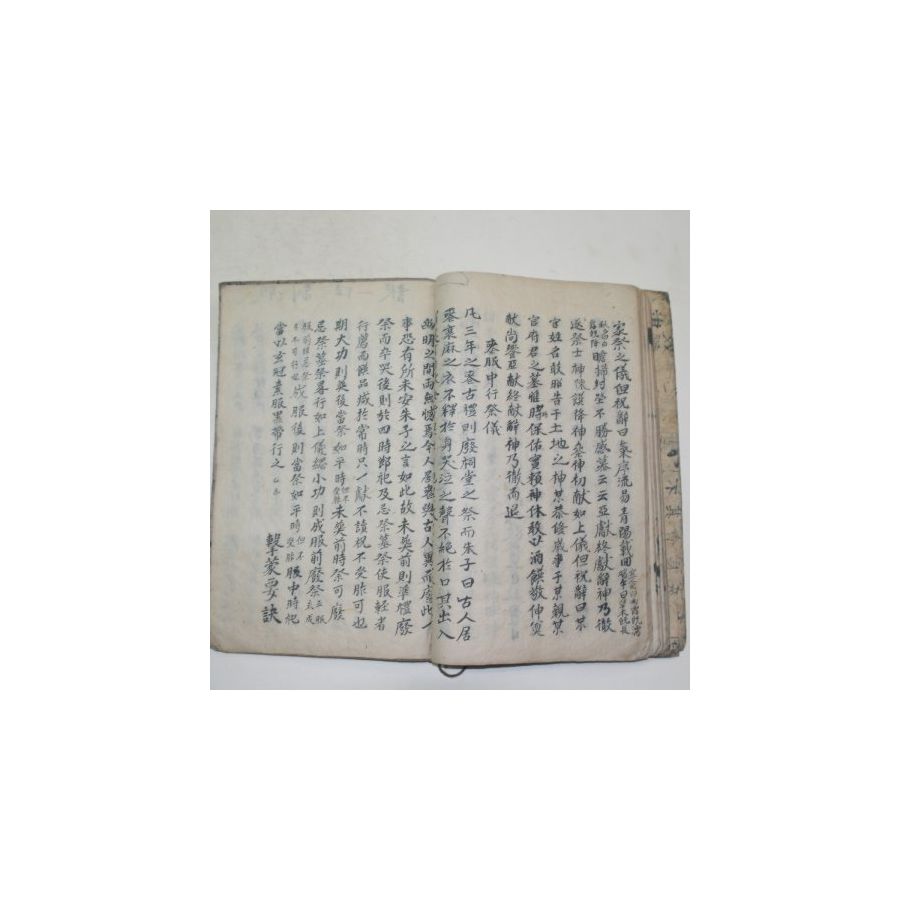 家祭之儀但祝辭曰氣序流易青陽載回
瞻掃封塋不勝感慕云云亞獻終獻辭神乃徹
遂祭土神陳饌降神參神初獻如上儀但祝辭曰某
官姓名敢昭告于土地之神某恭修歲事于某親某
官府君之墓惟時保佑實賴神休敢以酒饌敬伸奠
献尚饗亞献終献辭神乃徹而退
喪服中行祭儀
凡三年之喪古禮則廢祠堂之祭而朱子曰古人居
喪衰麻之衣不釋於身哭泣之聲不絶於口其出入
幽明之間兩無憾焉今人居喪與古人異而廢此一
事恐有所未安朱子之言如此故未葬前則準禮廢
祭而卒哭後則於四時節祀及忌祭墓祭使服輕者
行薦而饌品减於常時只一献不讀祝不受胙可也
期大功則葬後當祭如平時但不受胙未葬前時祭可廢
忌祭墓祭畧行如上儀緦小功則成服前廢祭
成服後則當祭如平時但不受胙服中時祀
當以玄冠素服黑帶行之
擊蒙要訣